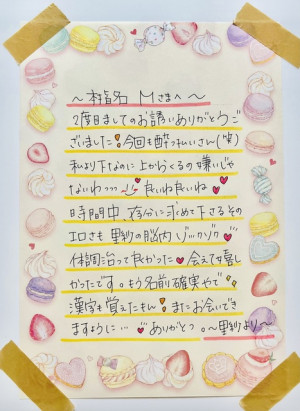 〜本指名 Mさまへ〜
2度目ましてのお誘いありがとうご
ざいました！今回も酔っ払いさん(笑)
私より下なのに上からくるの嫌いじゃ
ないわっっっ だいねだいね
時間中、存分に求めて下さるその
エロさも里紗の脳内ゾックゾク
体調治って良かった 会えて嬉し
かったです。もう名前確実やで
漢字も覚えたもん！またお会いでき
ますように… ありがとっ。〜里紗より〜